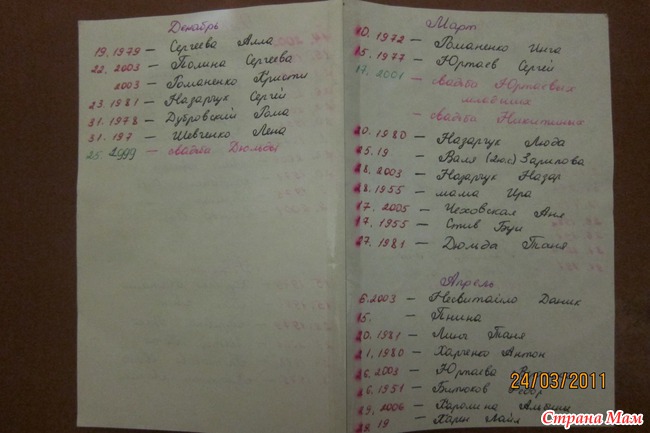 Декабрь
19. 1979 – Сергеева Алла
22. 2003 – Полина Сергеева
2003 – Романенко Кристи
23. 1981 – Назарчук Сергей
31. 1978 – Дубровский Рома
31. 197 – Шевченко Лена
25 1999 – свадьба Дюльды
Март
10. 1972 – Романенко Инга
15. 1977 – Юртаев Сергей
17. 2001 – свадьба Юртаевых
младших
– свадьба Никитиных
20. 1980 – Назарчук Люда
25. 19 – Валя Зарипова
28. 2003 – Назарчук Назар
28. 1955 – мама Ира
17. 2005 – Чеховская Аня
17. 1955 – Стив Буи
27. 1981 – Дюлда Таня
Апрель
6. 2003 – Несвитайло Даник
15. – Пнина
20. 1981 – Линг Таня
21. 1980 – Харченко Антон
26. 2003 – Юртаева
26. 1951 – Битюков
29. 2006 – Каролина
29. 19 – Карен Лайл
24/03/2011
Страна Мам